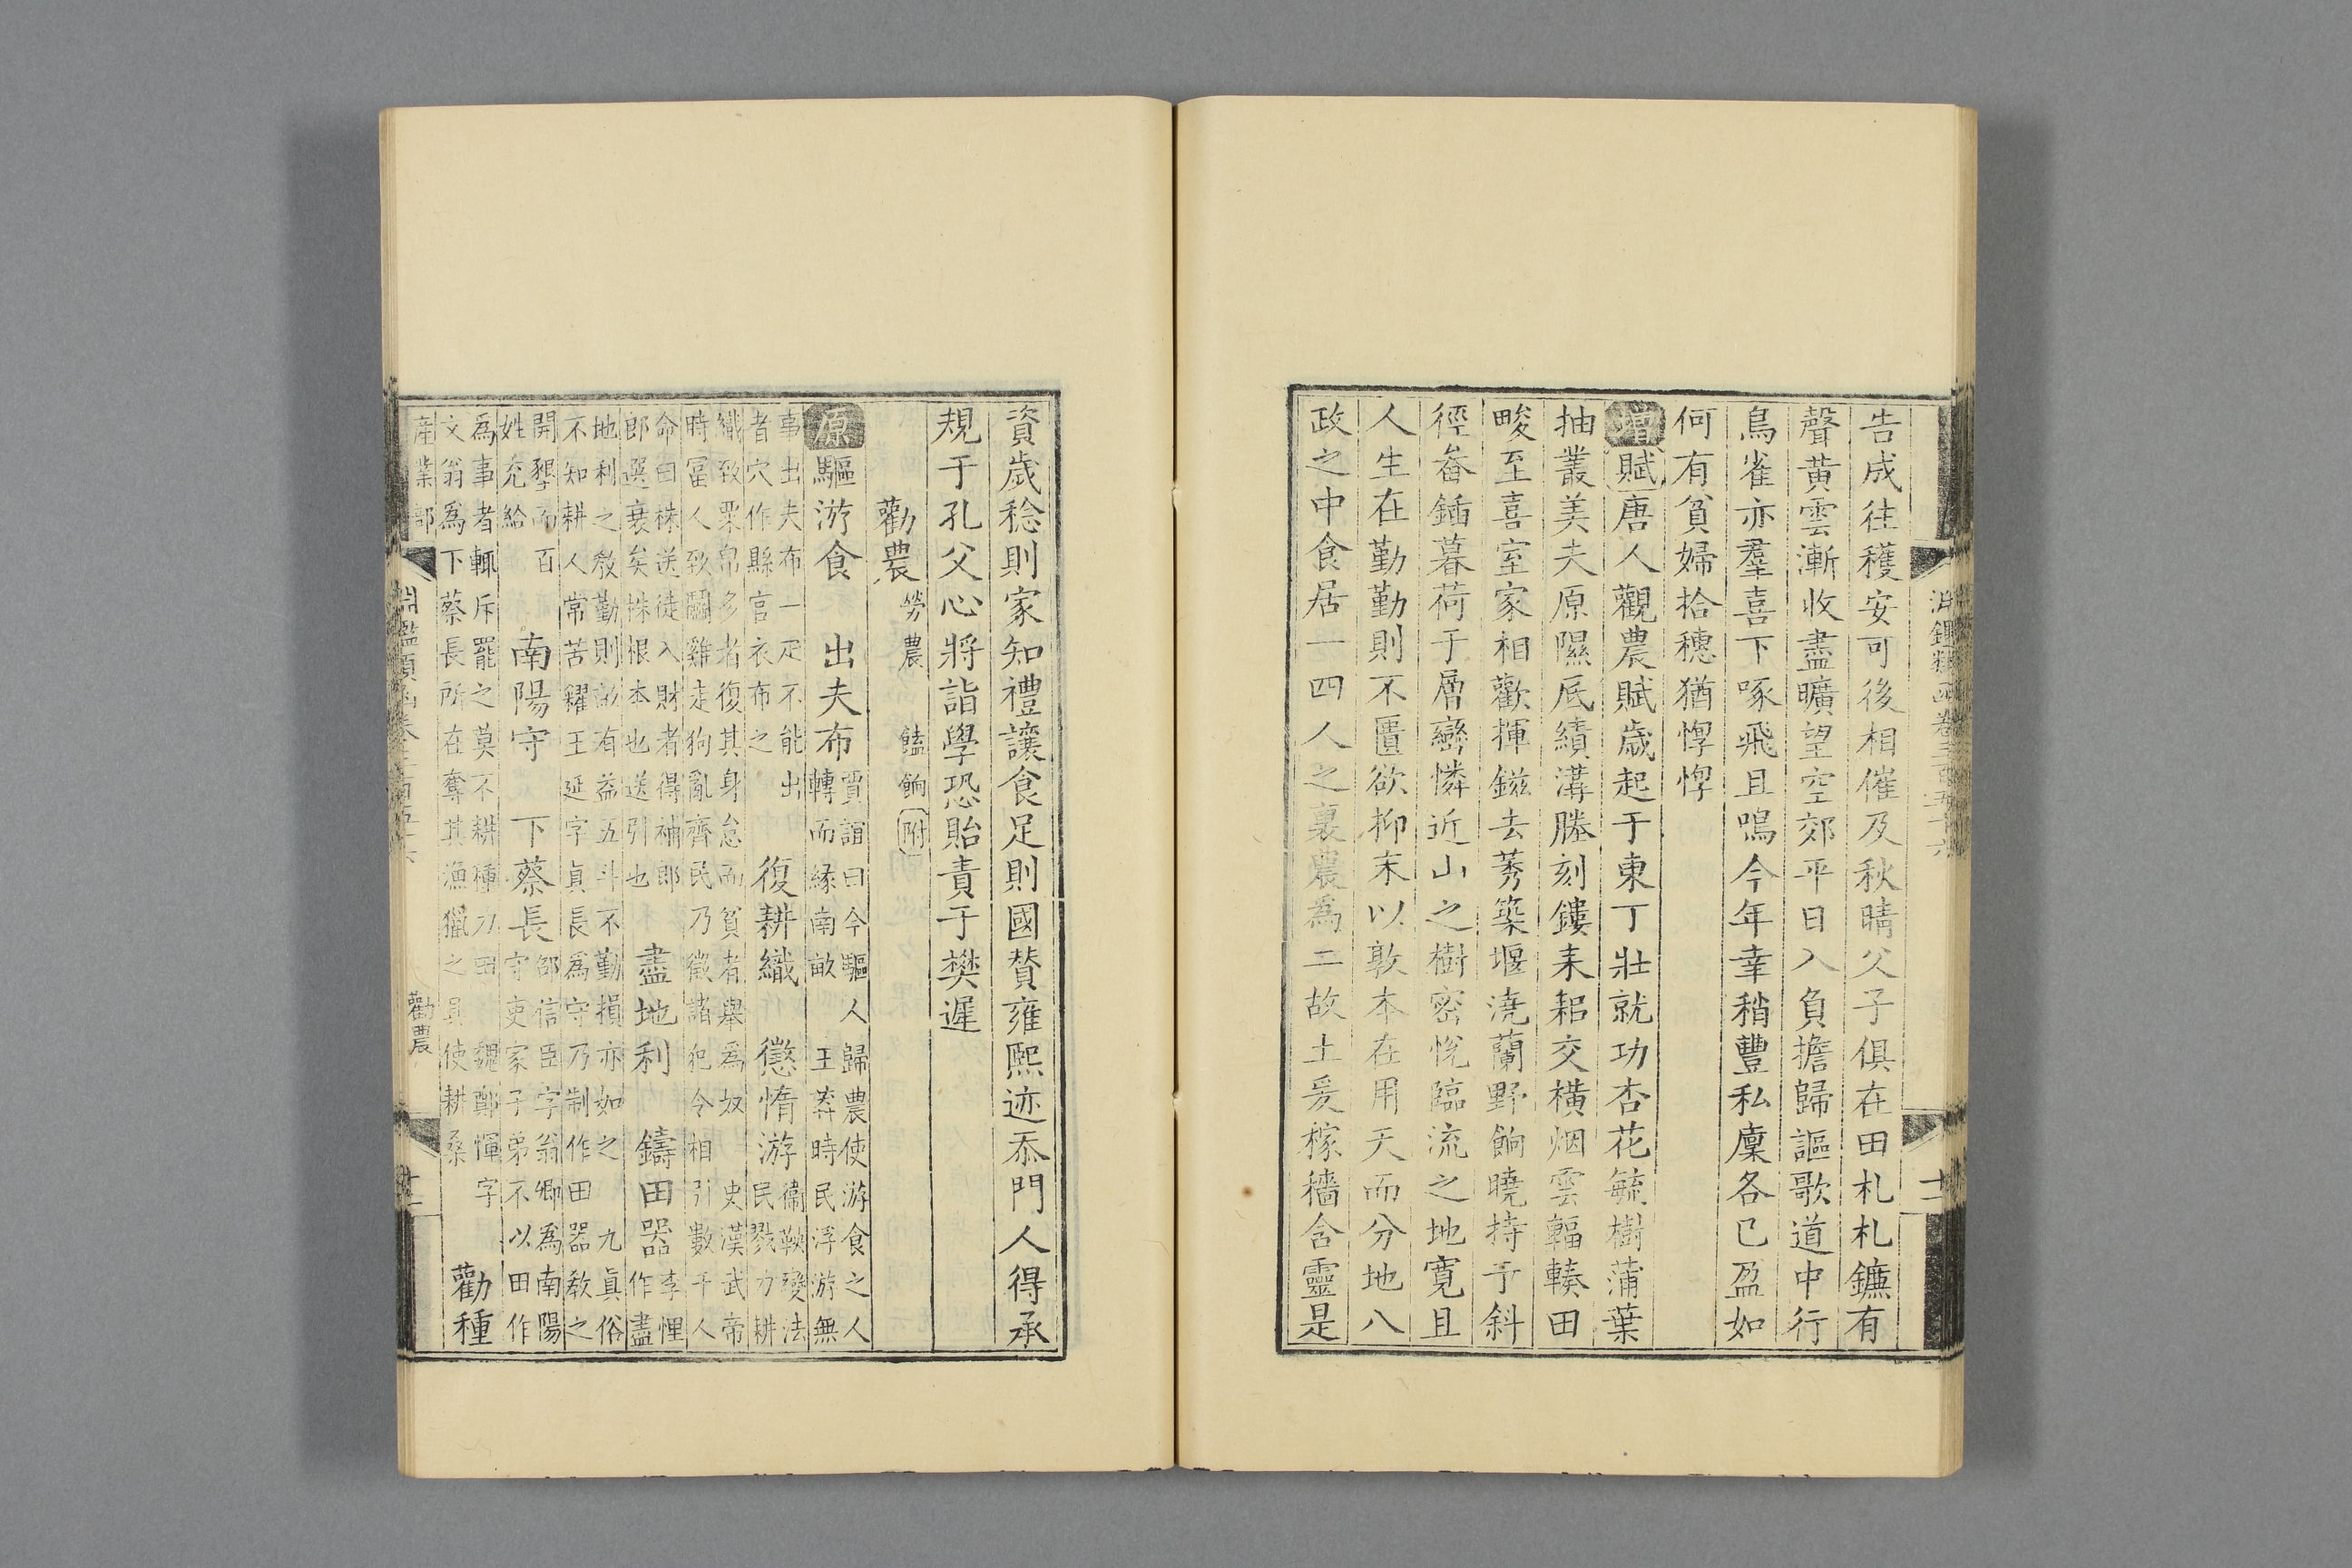 告成往穫安可後相催及秋晴父子俱在田札札鐮有
聲黃雲漸收盡曠望空郊平日入負擔歸謳歌道中行
鳥雀亦羣喜下啄飛且鳴今年幸稍豐私廩各已盈如
何有貧婦拾穗猶惸惸
增賦唐人觀農賦歲起于東丁壯就功杏花毓樹蒲葉
抽叢美夫原隰厎績溝塍刻鏤耒耜交橫烟雲輻輳田
畯至喜室家相歡揮鎡去莠築堰澆蘭野餉曉持于斜
徑畚鍤暮荷于層巒憐近山之樹密悅臨流之地寬且
人生在勤勤則不匱欲抑末以敦本在用天而分地八
政之中食居一四人之裏農為二故土爰稼穡含靈是
資歲稔則家知禮讓食足則國贊雍熙迹忝門人得承
規于孔父心將詣學恐貽責于樊遲
勸農 勞農 饁餉附
原驅游食 賈誼曰今驅人歸農使游食之人
轉而緣南畝 出夫布 王莽時民浮游無
事出夫布一疋不能出
者穴作縣官衣布之 復耕織 懲惰游 衞鞅變法
民戮力耕
織致粟帛多者復其身怠而貧者舉為奴 史漢武帝
時富人致鬭雞走狗亂齊民乃徵諸犯令相引數千人
命曰株送徒入財者得補郎
郎選衰矣株根本也送引也 盡地利 李悝
作盡
地利之教勤則畝有益五斗不勤損亦如之 鑄田器 九真俗
不知耕人常苦糴王延字真長為守乃制作田器教之
開墾而百
姓充給 南陽守 下蔡長 邵信臣字翁卿為南陽
守吏家子弟不以田作
為事者輒斥罷之莫不耕種力田 魏鄭渾字
文翁為下蔡長所在奪其漁獵之具使耕桑 勸種
產業部
淵鑑類函卷三百五十六
勸農